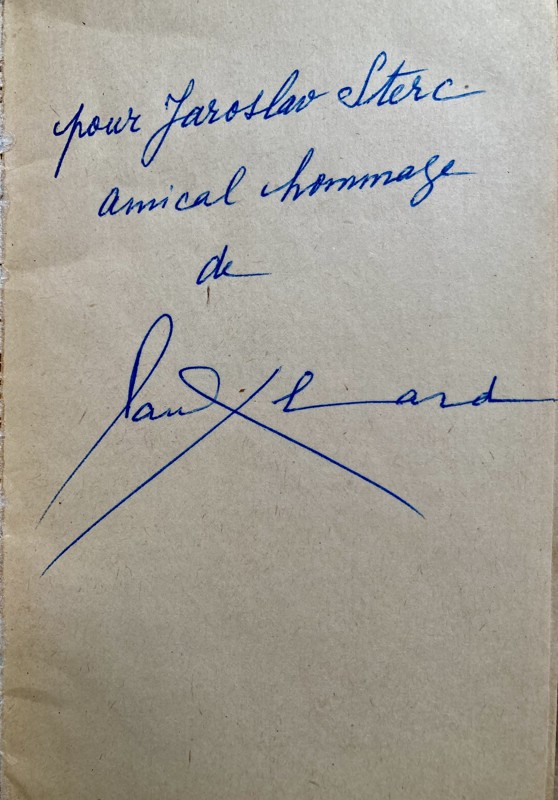 pour Jaroslav Sterc.
amical hommage
de
Paul Eluard